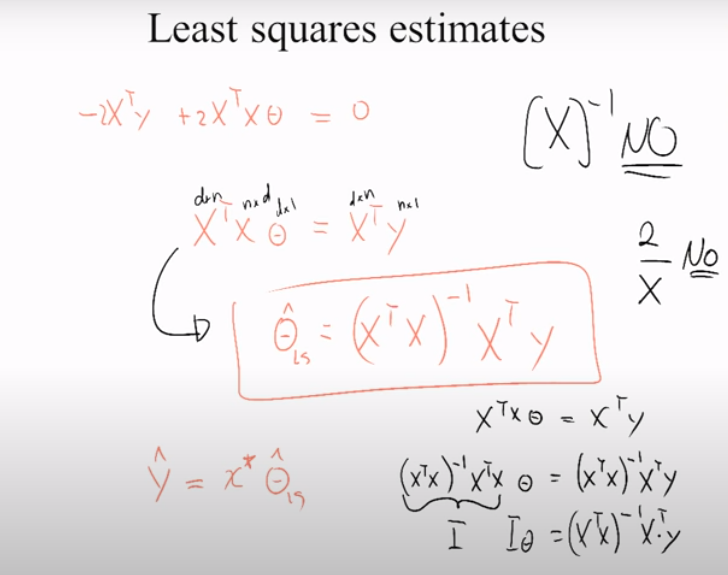 Least squares estimates
-2Xᵀy + 2XᵀXθ = 0
(X)⁻¹ NO
d×n n×d d×1 d×n n×1
XᵀXθ = Xᵀy
2/X No
θ̂ₗₛ = (XᵀX)⁻¹Xᵀy
XᵀXθ = Xᵀy
ŷ = x* θ̂ₗₛ
(XᵀX)⁻¹XᵀXθ = (XᵀX)⁻¹Xᵀy
I Iθ = (XᵀX)⁻¹Xᵀ·y